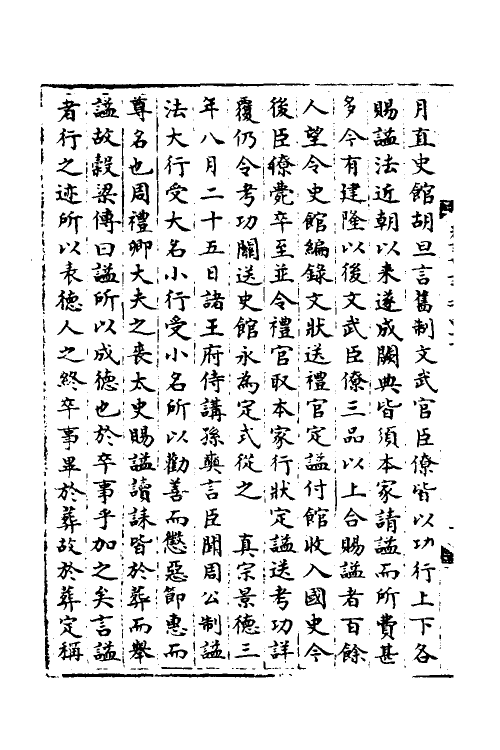 月直史館胡旦言舊制文武官臣僚皆以功行上下各
賜諡法近朝以來遂成闕典皆須本家請諡而所費甚
多今有建隆以後文武臣僚三品以上合賜諡者百餘
人望令史館編錄文狀送禮官定諡付館收入國史今
後臣僚薨卒至並令禮官取本家行狀定諡送考功詳
覆仍令考功關送史館永為定式從之　真宗景德三
年八月二十五日諸王府侍講孫奭言臣聞周公制諡
法大行受大名小行受小名所以勸善而懲惡節惠而
尊名也周禮卿大夫之喪太史賜諡讀誄皆於葬而舉
諡故穀梁傳曰諡所以成德也於卒事乎加之矣言諡
者行之迹所以表德人之終卒事畢於葬故於葬定稱